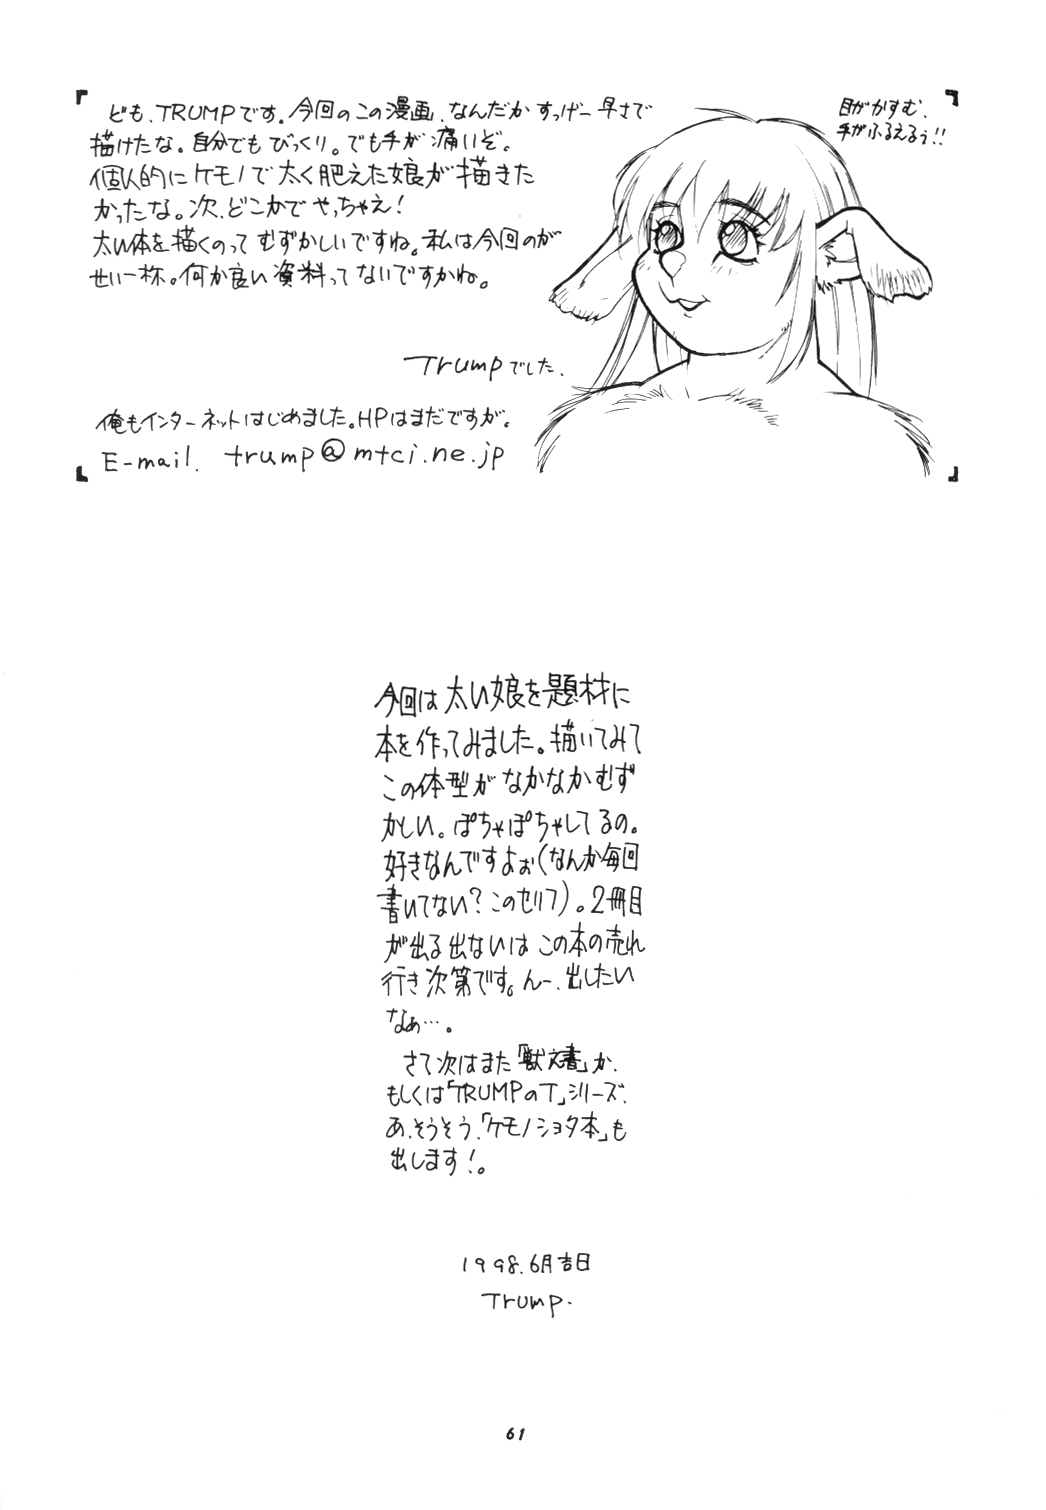 ども、TRUMPです。今回のこの漫画、なんだか すっげー 早さで
描けたな。自分でもびっくり。でも手が痛いぞ。
個人的にケモノで太く肥えた娘が描きた
かったな。次、どこかでやっちゃえ!
太い体を描くのってむずかしいですね。私は今回のが
せい一杯。何か良い資料ってないですかね。
Trumpでした.
俺もインターネットはじめました。HPはまだですが。
E-mail. trump@mtci.ne.jp
目がかすむ、
手がふるえるぅ!!
今回は太い娘を題材に
本を作ってみました。描いてみて
この体型がなかなかむず
かしい。ぽちゃぽちゃしてるの。
好きなんですよぉ(なんか毎回
書いてない?このセリフ)。2冊目
が出る出ないはこの本の売れ
行き次第です。んー、出したい
なぁ…。
さて次はまた「獣え書」か、
もしくは「TRUMPのT」シリーズ、
あ、そうそう、「ケモノショタ本」も
出します!。
1998.6月吉日
Trump.
61